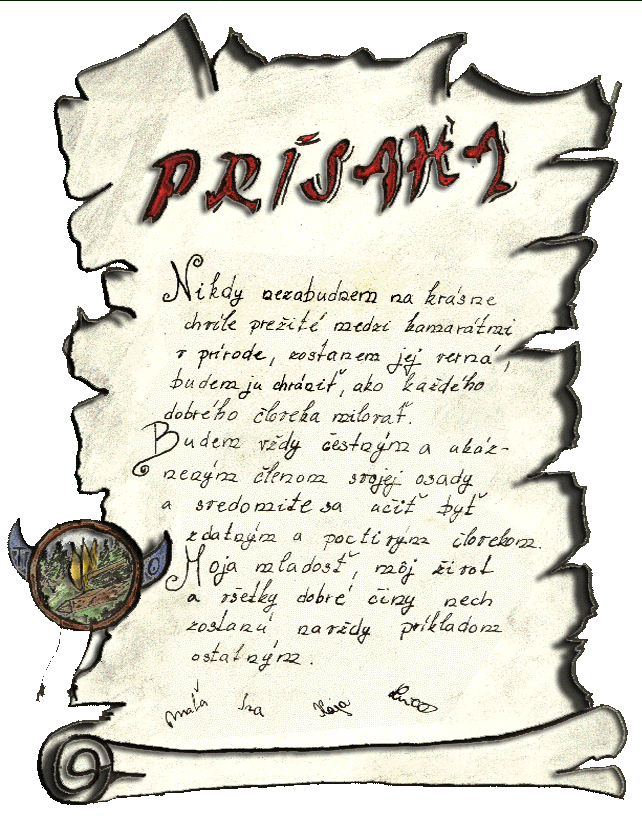 PRÍSAHA
Nikdy nezabudnem na krásne
chvíle prežité medzi kamarátmi
v prírode, zostanem jej verná,
budem ju chrániť, ako každého
dobrého človeka milovať.
Budem vždy čestným a ukáz-
neným členom svojej osady
a svedomite sa učiť byť
zdatným a poctivým človekom.
Moja mladosť, môj život
a všetky dobré činy nech
zostanú navždy príkladom
ostatným.
Maťa Iva